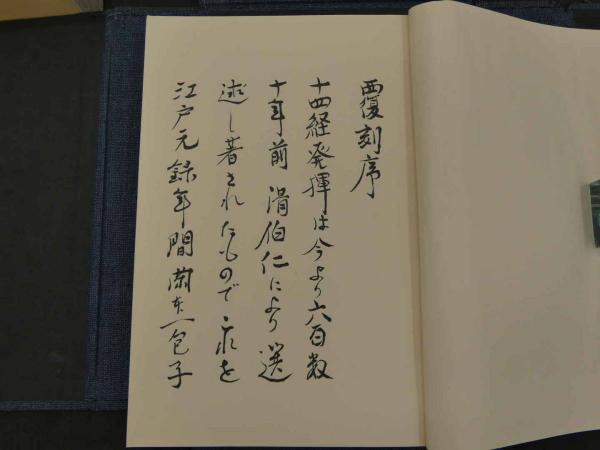 再復刻序
十四経発揮は今より六百数
十年前 滑伯仁により選
述し著されたもので之を
江戸元録年間蘭東一包子